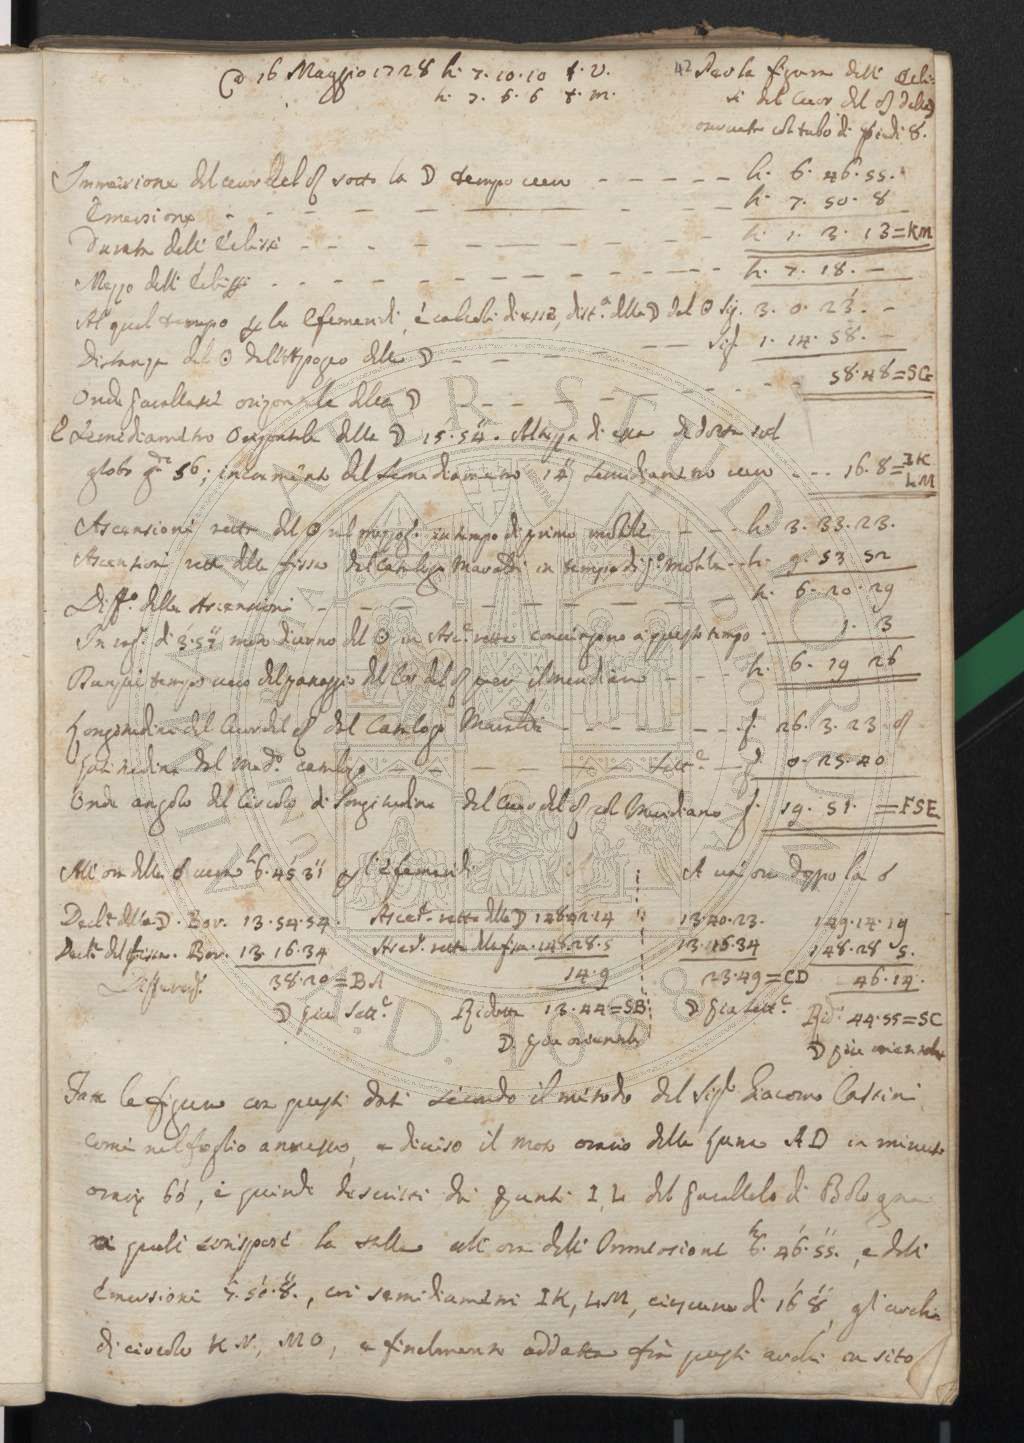 ☾ 16 Maggio 1728 h. 7. 10. 10 t. v.
h. 7. 6. 6 t. m.
42 Per la figura dell' Eclis-
si del Cuor del ♌ dalla ☽
osservata col tubo di piedi 8.
Immersione del cuor del ♌ sotto la ☽ tempo vero h. 6. 46. 55.
Emersione h. 7. 50. 8
Durata dell' Eclissi h. 1. 3. 13 = KM
Mezzo dell' Eclissi h. 7. 18. —
Al qual tempo per le Efemeridi, e calcoli dist.ª della ☽ dal ☉ Sig. 3. 0. 23 —
Distanza del ☉ dall'Apogeo della ☽ Sig. 1. 14. 58. —
Onde Parallasse orizontale della ☽ 58. 48 = SG
e Semidiametro Orizontale della ☽ 15. 54". Altezza di essa dedotta sul
globo g.di 56; incremento del semidiametro 14" semidiametro vero 16. 8 = IK
LM
Ascensione retta del ☉ nel mezzog. in tempo di primo mobile h. 3. 33. 23.
Ascensione retta della fissa del Catalogo Maraldi in tempo di p.º mobile h. 9. 53 52
Diff.ª delle Ascensioni h. 6. 20. 29
In rag. di 3'. 57" moto diurno del ☉ in Asc. retta convengono a questo tempo 1. 3
tempo vero del passaggio del Cor del ♌ per il meridiano h. 6. 19 26
Longitudine del Cuor del ♌ dal Catalogo Maraldi g. 26. 3. 23. ♌
Latitudine dal med.º catalogo Sett.e g. 0. 25. 40
Onde angolo del Circolo di Longitudine del Cuor del ♌ col Meridiano g. 19. 51. = FSE
All' ora della ☌ vera h 6. 45' 31" per l'Efemeridi
A un' ora doppo la ☌
Decl.e della ☽. Bor. 13. 54. 54. Asce.e retta della ☽ 148 42. 14
13. 40. 23. 149. 14. 19
Decl.e del fissa. Bor. 13. 16. 34 Asce.e retta della fissa. 148. 28. 5
13. 16. 34 148. 28 5.
Differenz. 38. 20 = BA 14. 9
23. 49 = CD 46. 14.
☽ piu Sett.e Ridotta 13. 44 = SB
☽ piu Sett.e Rid. 44. 55 = SC
☽ piu orientale
☽ piu orientale
Fatta la figura con questi dati secondo il metodo del Sig.r Giacomo Cassini
come nel foglio annesso, e diviso il moto orario della Luna AD in minuti
orarj 60', e quindi descritti dai punti I, L del Parallelo di Bologna
ai quali corrisponde la stella all' ora dell' Immersione h 6. 46'. 55"., e dell'
Emersione 7. 50'. 8"., coi semidiametri IK, LM, ciascuno di 16' 8", gl'archi
di circolo KN, MO, e finalmente addatta frà questi archi in sito